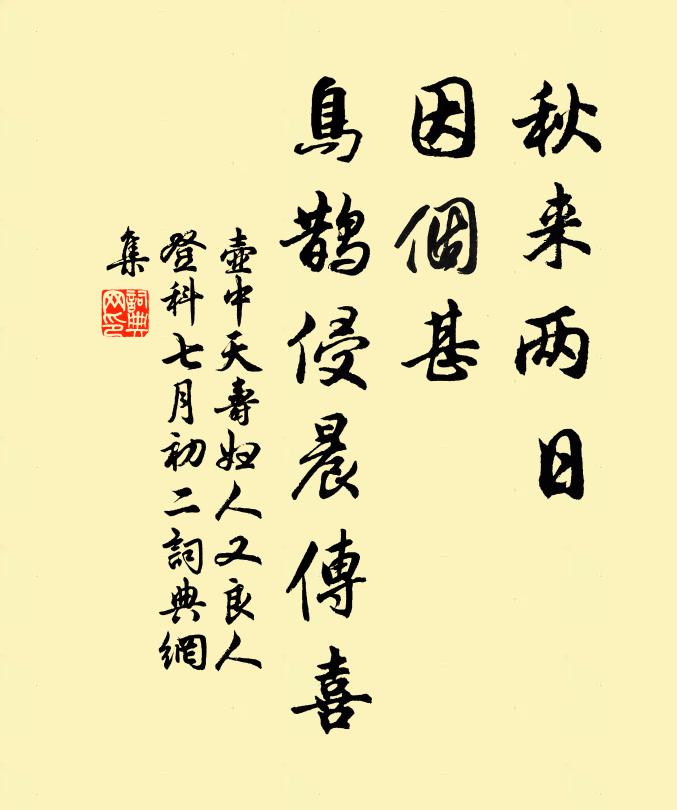 秋来两日
因個甚
鳥鵲侵晨傳喜
壷中天壽妇人又良人
登科七月初二詞典網
集
詞典网印